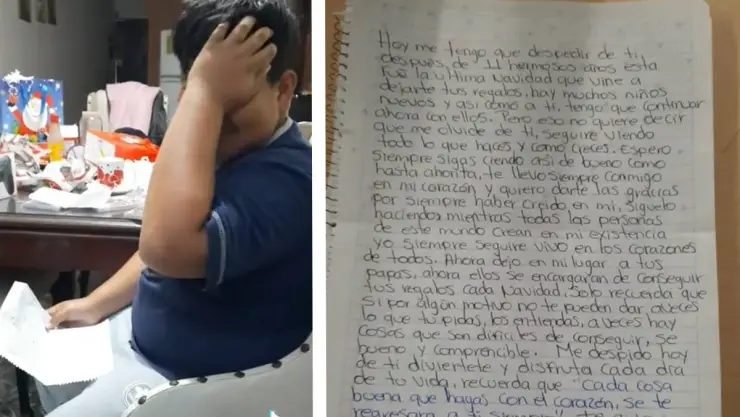 Hoy me tengo que despedir de ti
despues, de 11 hermosos años esta
fue la ultima navidad que vine a
dejarte tus regalos, hay muchos niños
nuevos y asi como a ti, tengo que continuar
ahora con ellos. Pero eso no quiere decir
que me olvide de ti, seguire viendo
todo lo que haces, y como creces. Espero
siempre sigas ciendo asi de bueno como
hasta ahorita, te llevo siempre conmigo
en mi corazón y quiero darte las gracias
por siempre haber creido en mi, siguelo
haciendo, mientras todas las personas
de este mundo crean en mi existencia
yo siempre seguire vivo en los corazones
de todos. Ahora dejo en mi lugar a tus
papas, ahora ellos se encargaran de conseguir
tus regalos cada Navidad, solo recuerda que
si por algún motivo no te pueden dar, aveces
lo que tu pidas, los entiendas, aveces hay
cosas que son dificiles de conseguir, se
bueno y comprencible. Me despido hoy
de ti diviertete y disfruta cada dia
de tu vida, recuerda que "Cada cosa
buena que hagas con el corazón, se te
regresara a ti siempre"